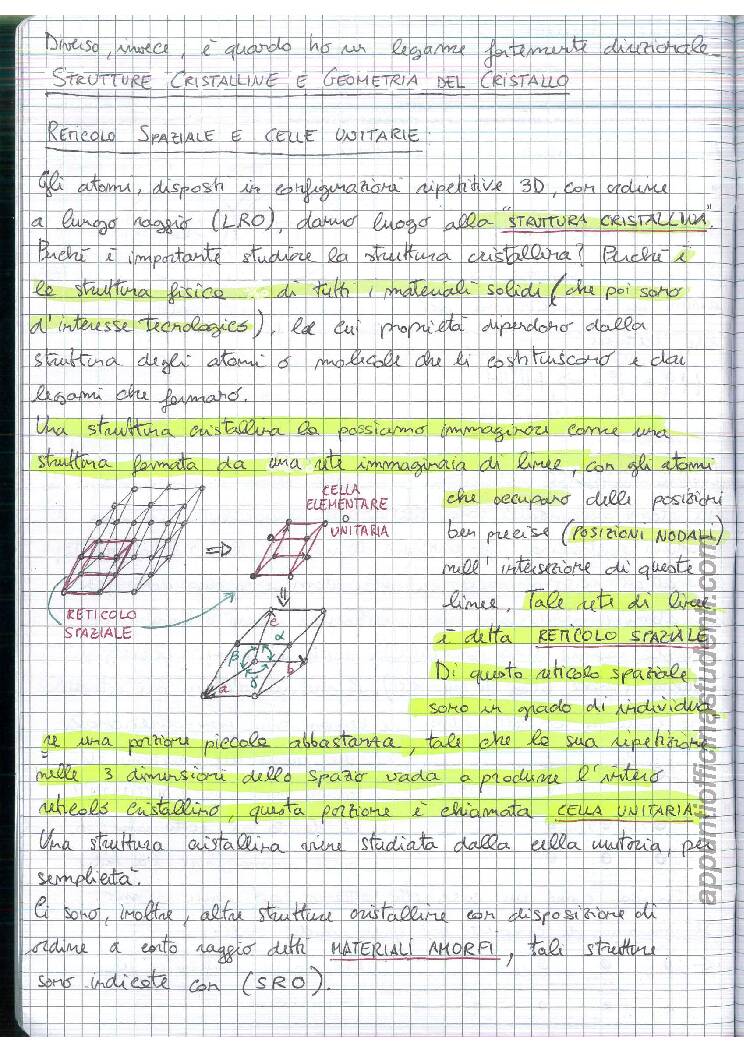 Diverso, invece, è quando ho un legame fortemente direzionale.
STRUTTURE CRISTALLINE E GEOMETRIA DEL CRISTALLO
RETICOLO SPAZIALE E CELLE UNITARIE.
Gli atomi, disposti in configurazioni ripetitive 3D, con ordine
a lungo raggio (LRO), danno luogo alla "STRUTTURA CRISTALLINA".
Perché è importante studiare la struttura cristallina? Perché è
la struttura fisica di tutti i materiali solidi (che poi sono
d'interesse tecnologico), le cui proprietà dipendono dalla
struttura degli atomi o molecole che li costituiscono e dai
legami che formano.
Una struttura cristallina la possiamo immaginare come una
struttura formata da una rete immaginaia di linee, con gli atomi
che occupano delle posizioni
ben precise (POSIZIONI NODALI)
nell'intersezione di queste
linee. Tale rete di linee
è detta RETICOLO SPAZIALE.
Di questo reticolo spaziale
sono in grado di individua
re una porzione piccola abbastanza, tale che la sua ripetizione
nelle 3 dimensioni dello spazio vada a produrre l'intero
reticolo cristallino, questa porzione è chiamata CELLA UNITARIA.
Una struttura cristallina viene studiata dalla cella unitaria, per
semplicità.
Ci sono, inoltre, altre strutture cristalline con disposizione di
ordine a corto raggio detti MATERIALI AMORFI, tali strutture
sono indicate con (SRO).
CELLA
ELEMENTARE
O
UNITARIA
⇒
⇓
RETICOLO
SPAZIALE
c
α
β
γ
a
b
appuntiofficinastudenti.com